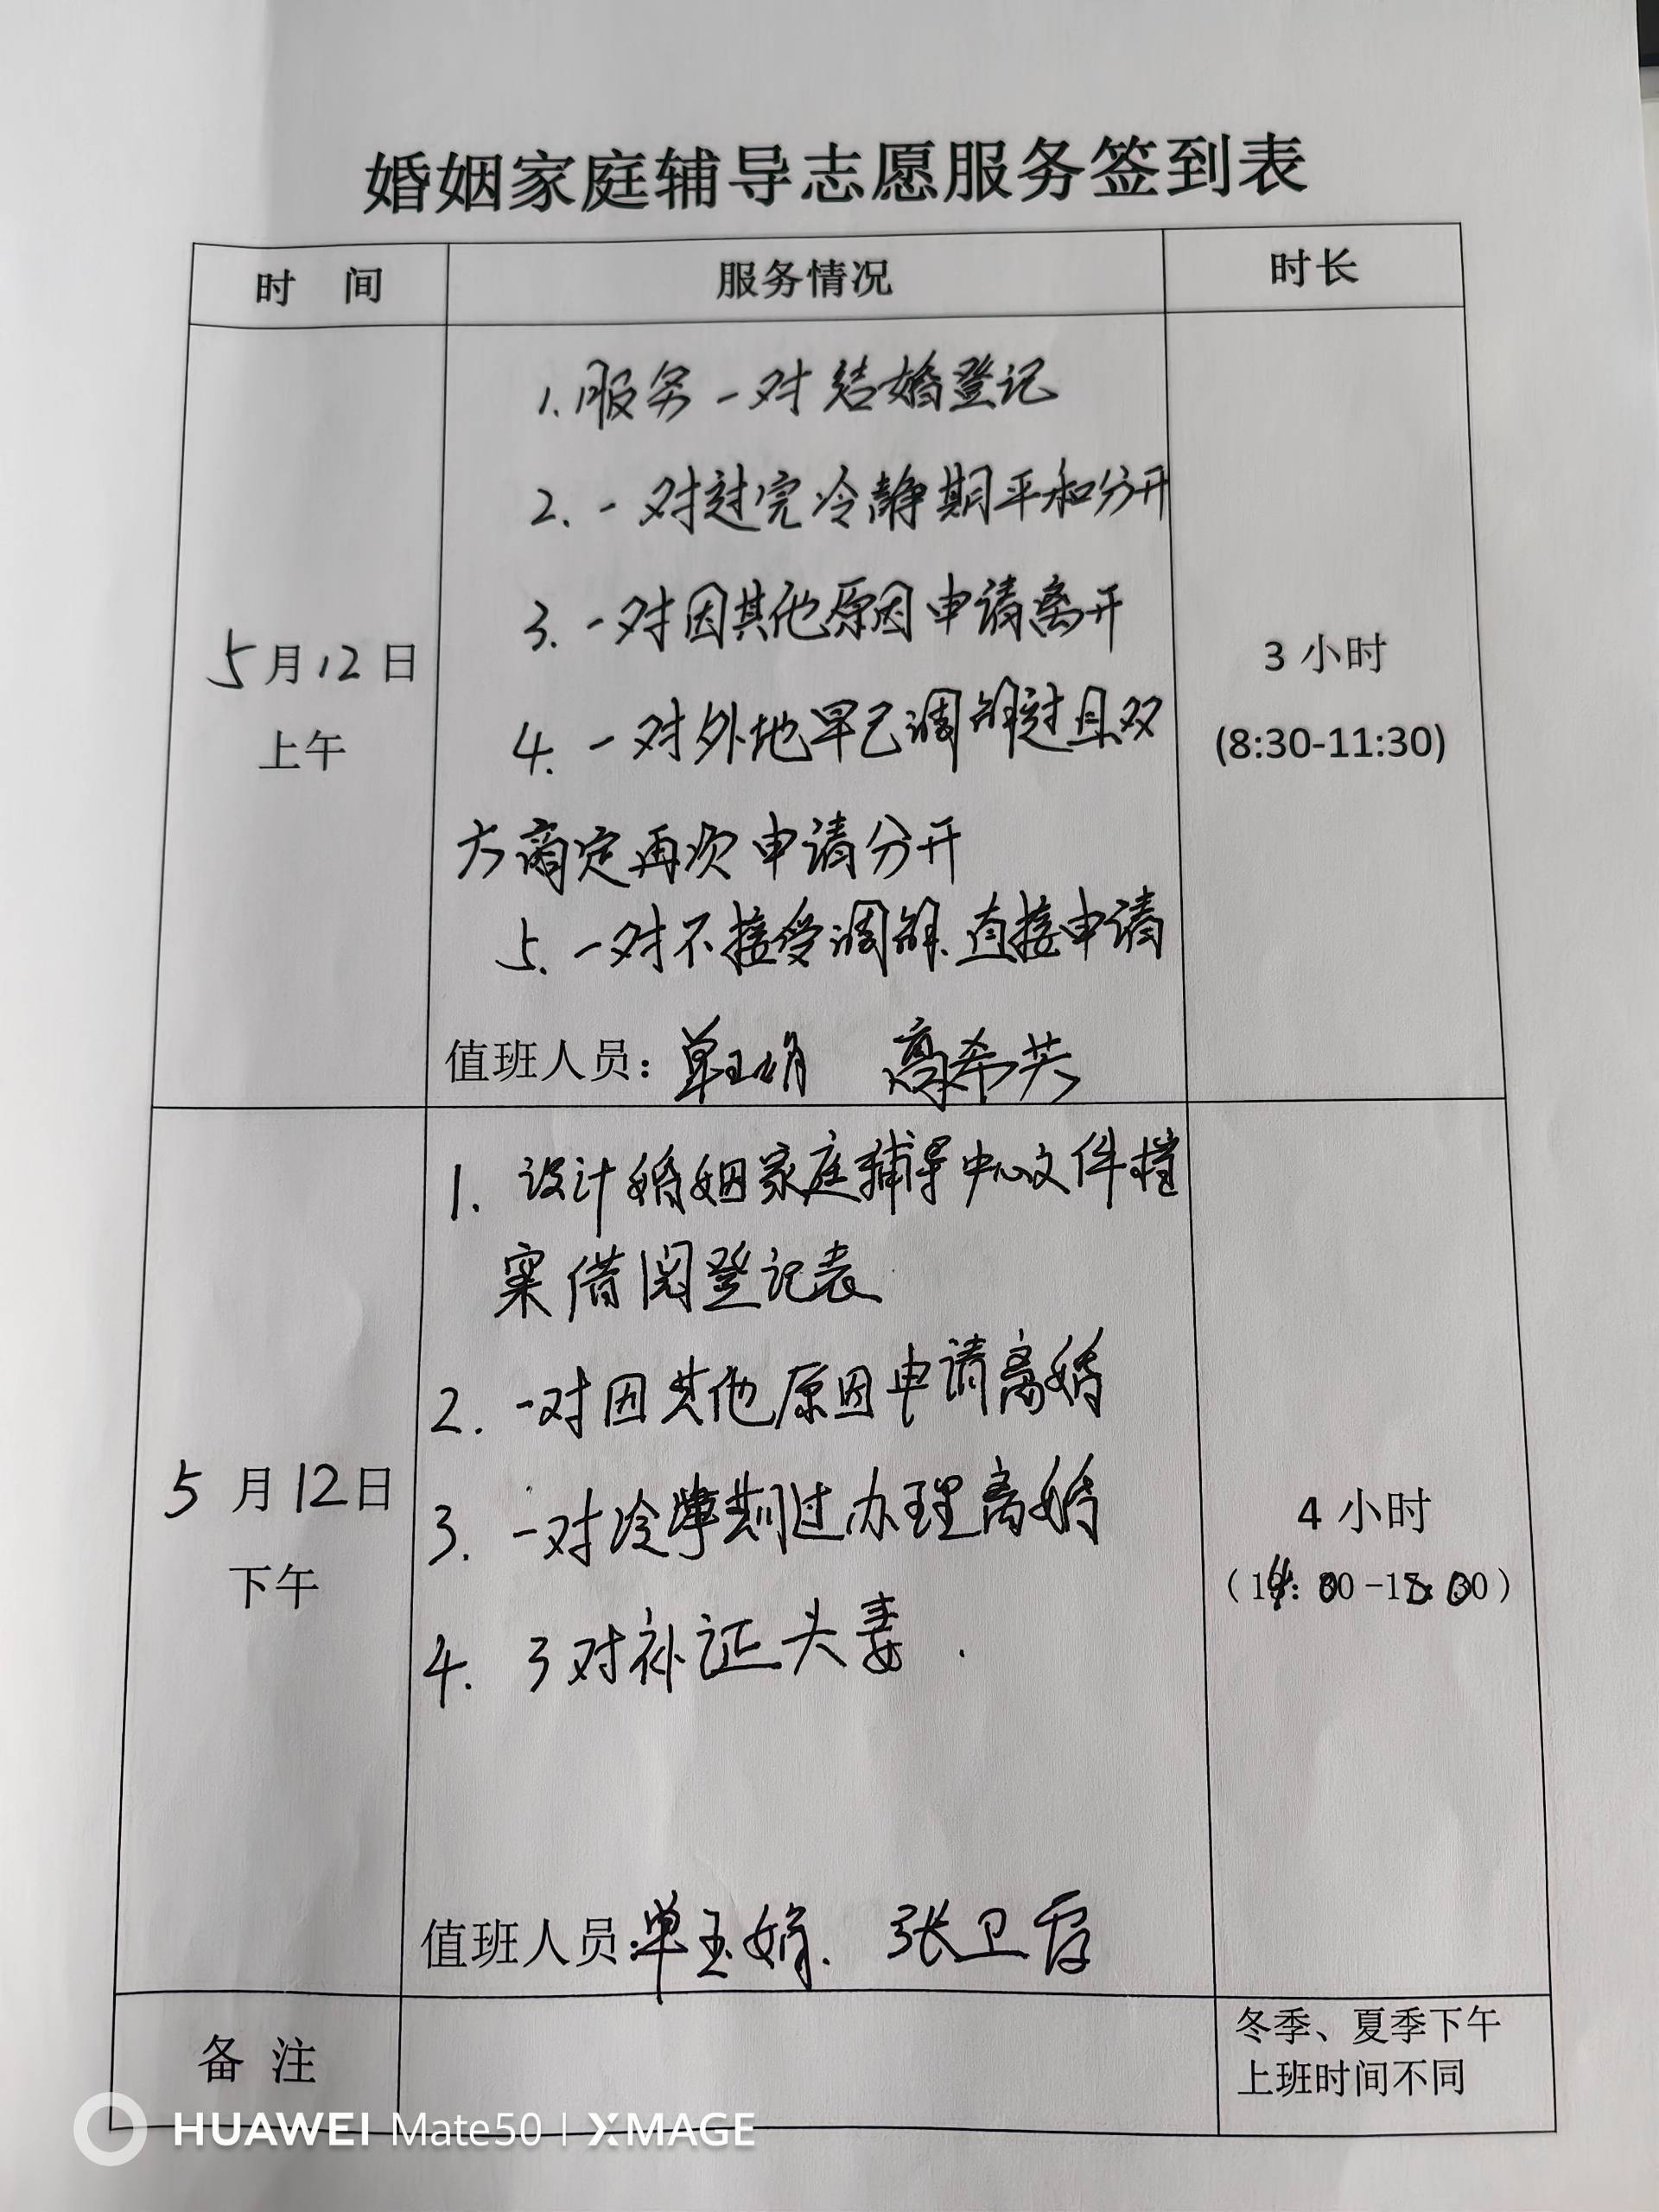 婚姻家庭辅导志愿服务签到表
时 间 服务情况 时长
1.服务一对结婚登记
2.一对过完冷静期平和分开
3.一对因其他原因申请离开
4.一对外地早已调解过且双
方商定再次申请分开
5.一对不接受调解.直接申请
值班人员：单玉娟 高希英
5月12日
上午
3 小时
(8:30-11:30)
1.设计婚姻家庭辅导中心文件档
案借阅登记表
2.一对因其他原因申请离婚
3.一对冷静期过办理离婚
4.3对补证夫妻.
值班人员:单玉娟.张卫霞
5月12日
下午
4 小时
（14：00-18：00）
备 注
冬季、夏季下午
上班时间不同
HUAWEI Mate50 | XMAGE